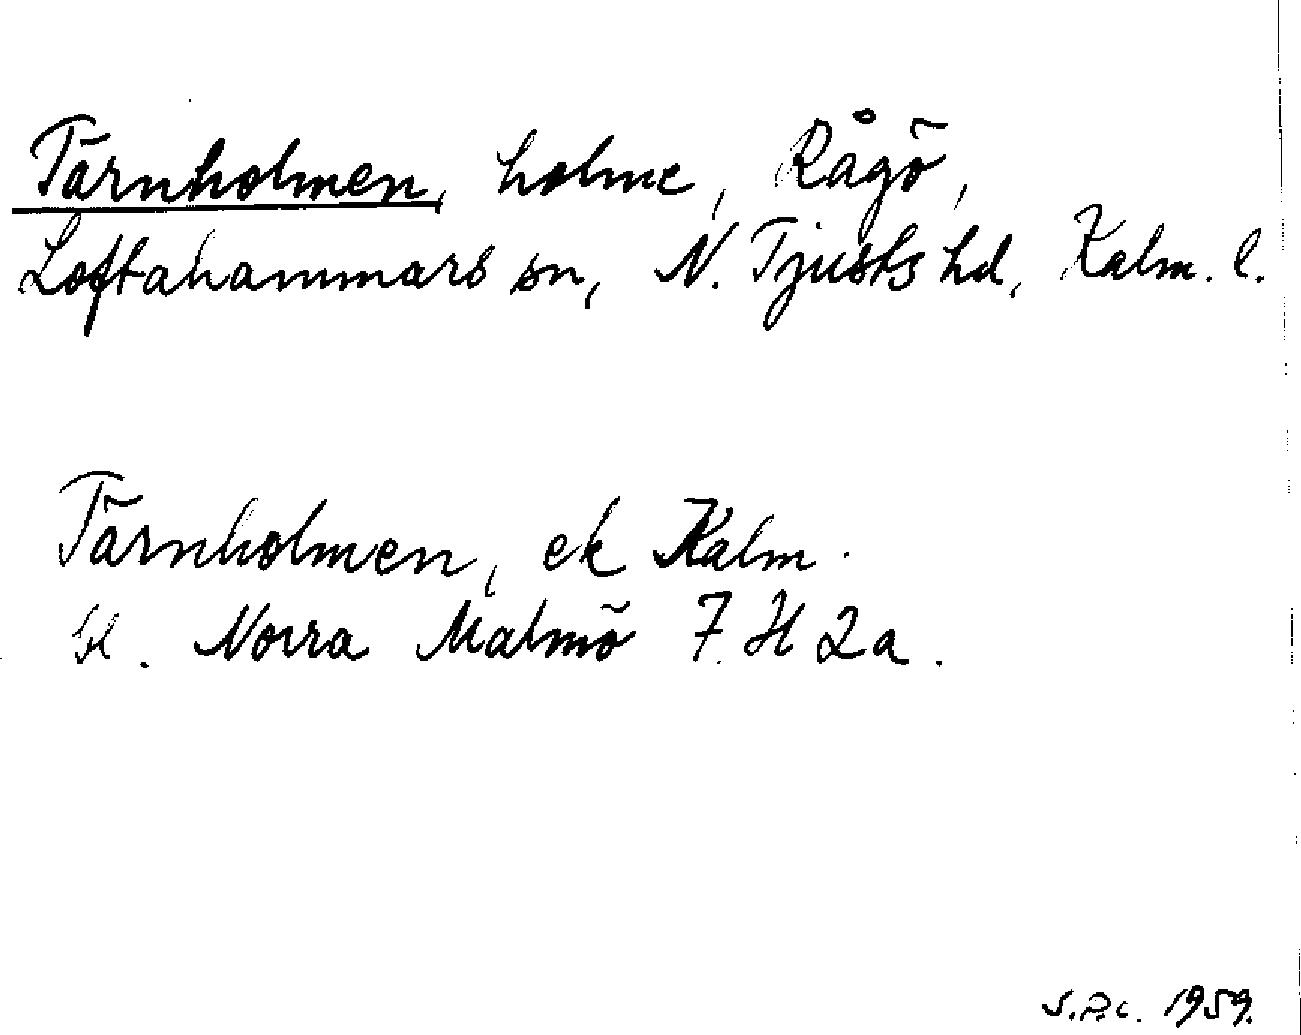 Tärnholmen, holme, Rågö,
Loftahammars sn, N. Tjusts hd, Kalm. l.
Tärnholmen, ek Kalm.
bl. Norra Malmö 7 H 2a.
S.P.C. 1959.